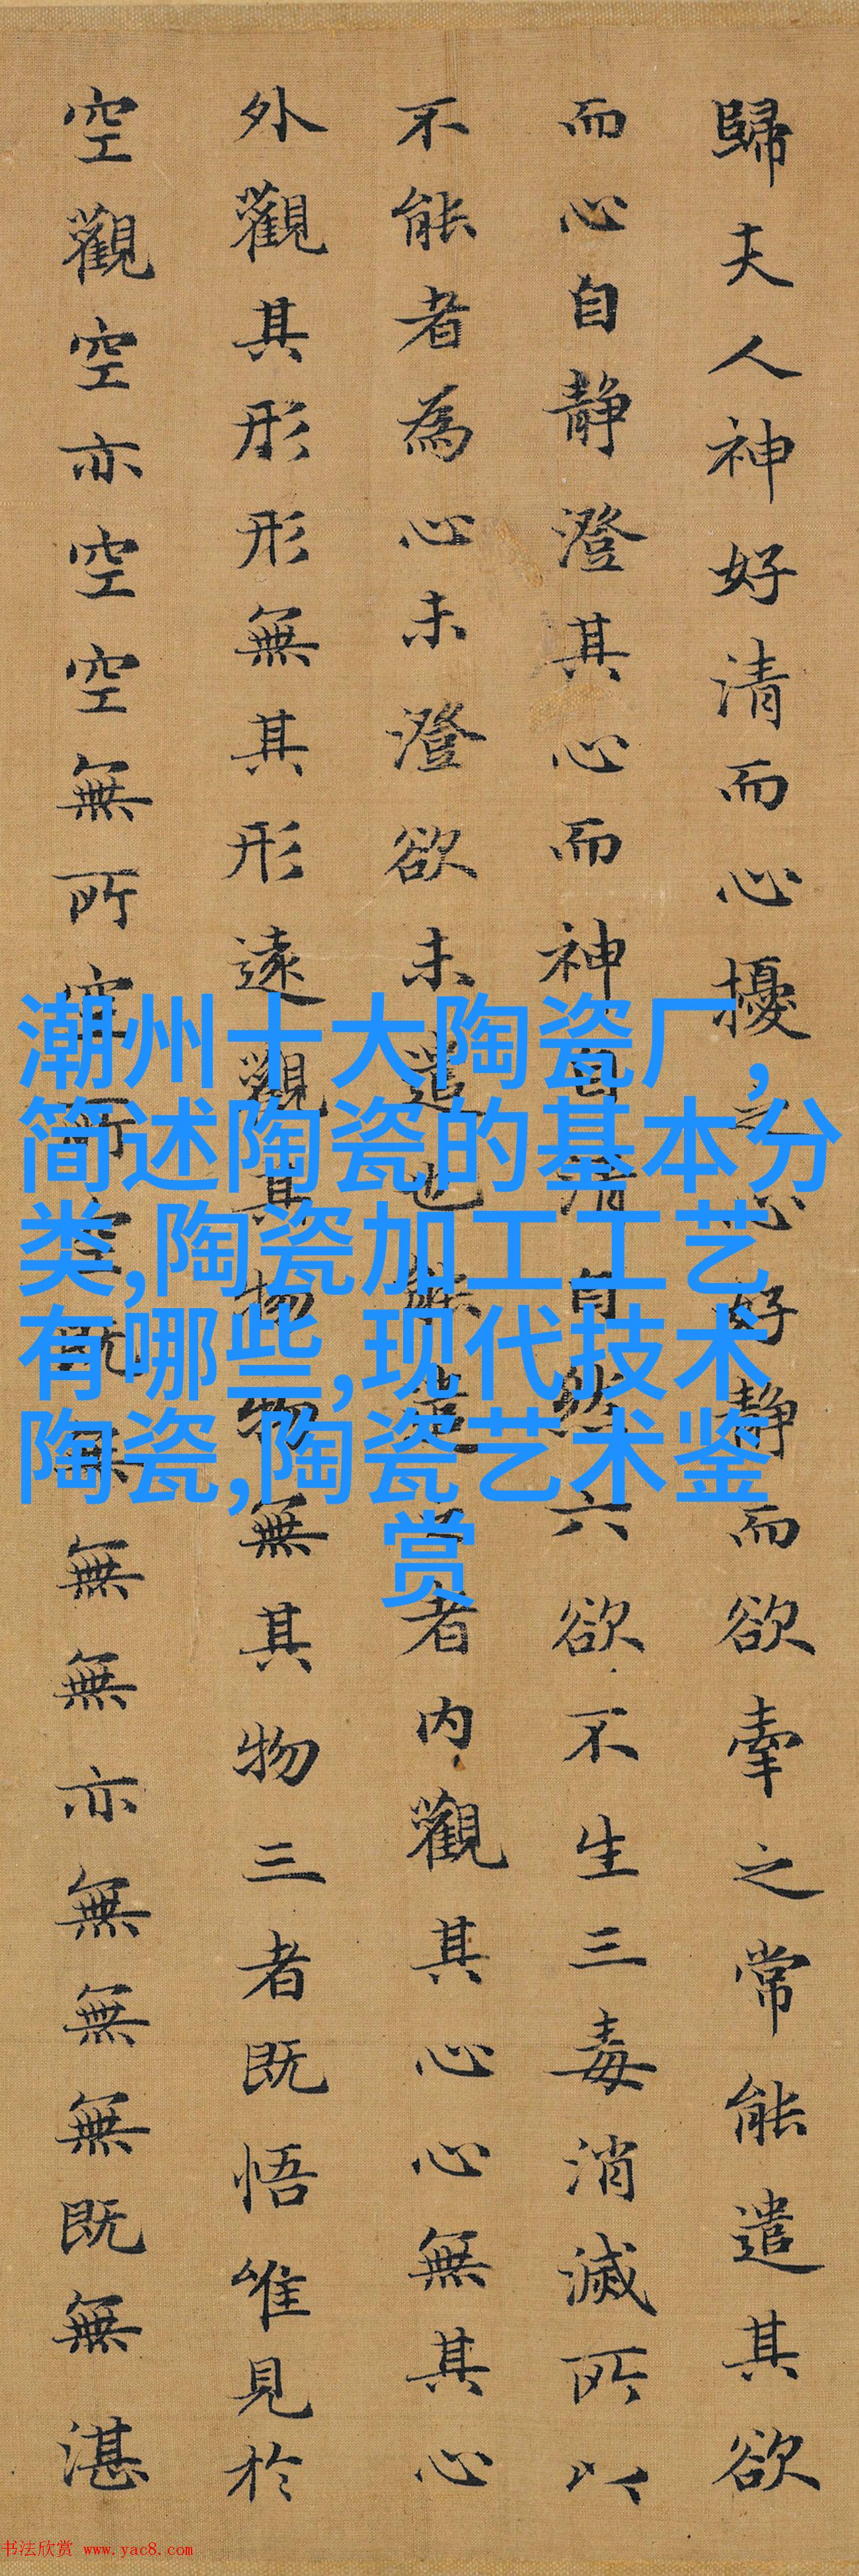 歸夫人神好清而心擾之心好静而欲牽之常能遣其欲
而心自静澄其心而神自清自然六欲不生三毒消滅所以
不能者為心未澄欲未遣也能遣之者内觀其心心無其心
外觀其形形無其形遠觀其物物無其物三者既悟唯見於
空觀空亦空空無所空所空既無無無亦無無無既無湛
潮州十大陶瓷厂,
简述陶瓷的基本分
类,陶瓷加工工艺
有哪些,现代技术
陶瓷,陶瓷艺术鉴
赏
书法欣赏 www.yac8.com